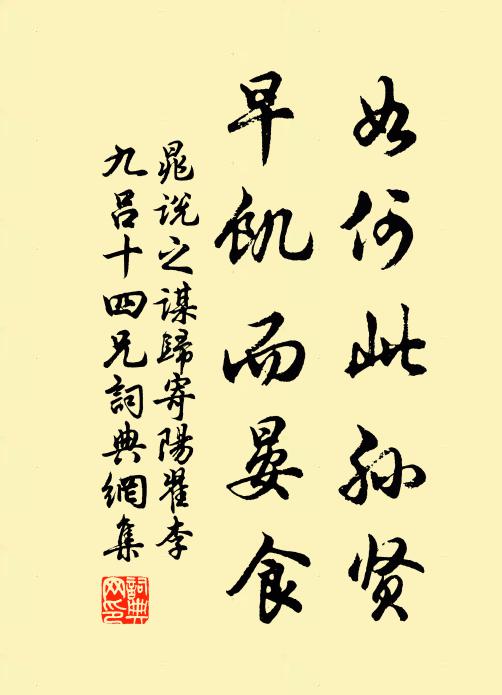 如何此孙贤
早飢而晏食
晁说之谋歸寄陽翟李
九吕十四兄詞典網集
詞典
网印